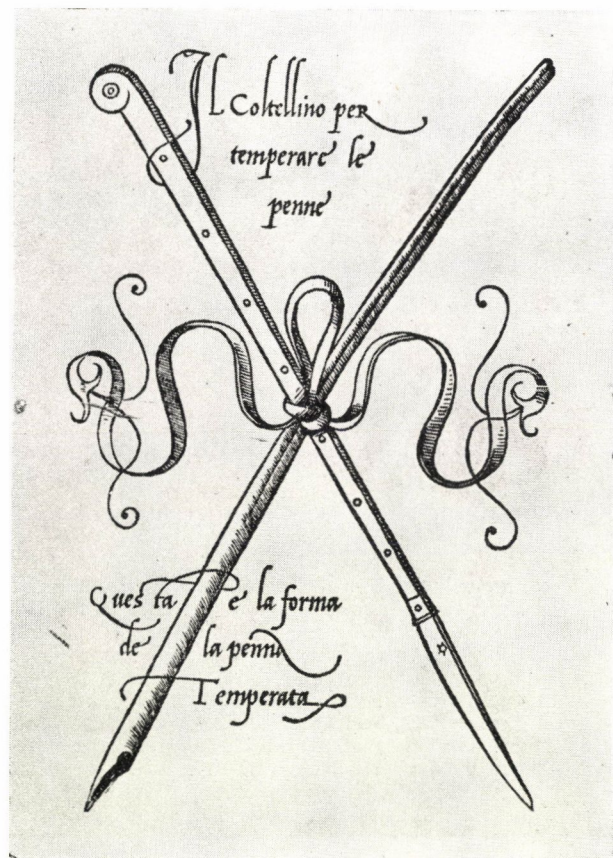 Il Coltellino per
temperare le
penne
Questa è la forma
de la penna
Temperata